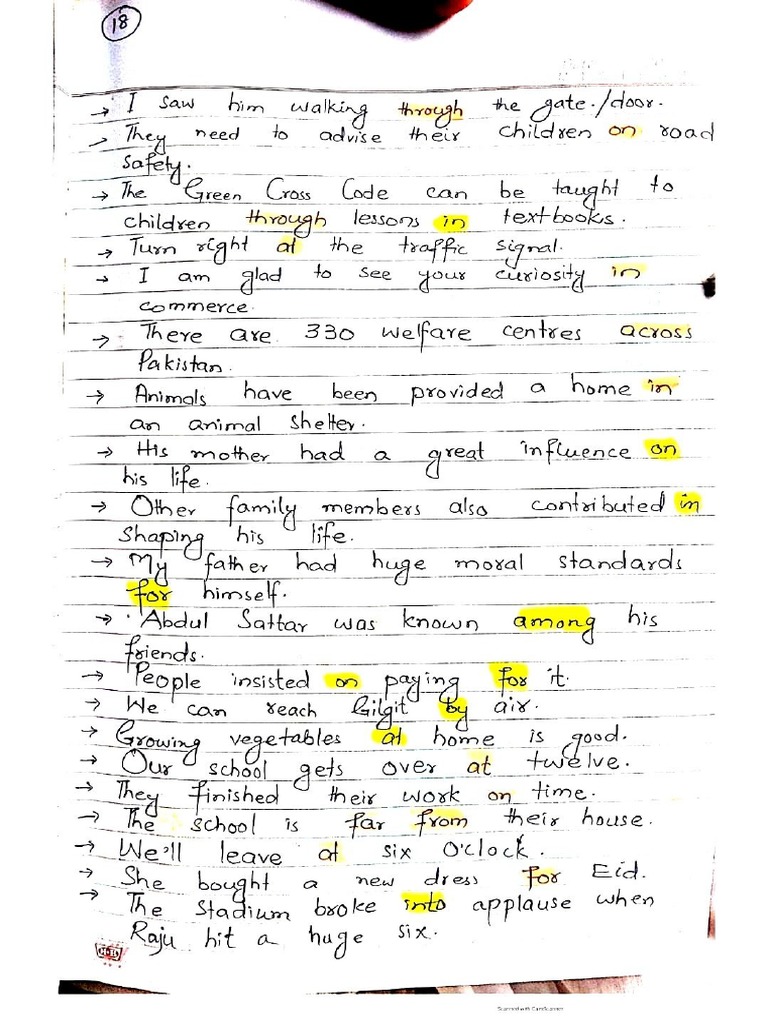 18
→ I saw him walking through the gate./door.
→ They need to advise their children on road
safety.
→ The Green Cross Code can be taught to
children through lessons in textbooks.
→ Turn right at the traffic signal.
→ I am glad to see your curiosity in
commerce.
→ There are 330 welfare centres across
Pakistan.
→ Animals have been provided a home in
an animal shelter.
→ His mother had a great influence on
his life.
→ Other family members also contributed in
shaping his life.
→ My father had huge moral standards
for himself.
→ Abdul Sattar was known among his
friends.
→ People insisted on paying for it.
→ We can reach Gilgit by air.
→ Growing vegetables at home is good.
→ Our school gets over at twelve.
→ They finished their work on time.
→ The school is far from their house.
→ We'll leave at six O'clock.
→ She bought a new dress for Eid.
→ The Stadium broke into applause when
Raju hit a huge six.
Scanned with CamScanner